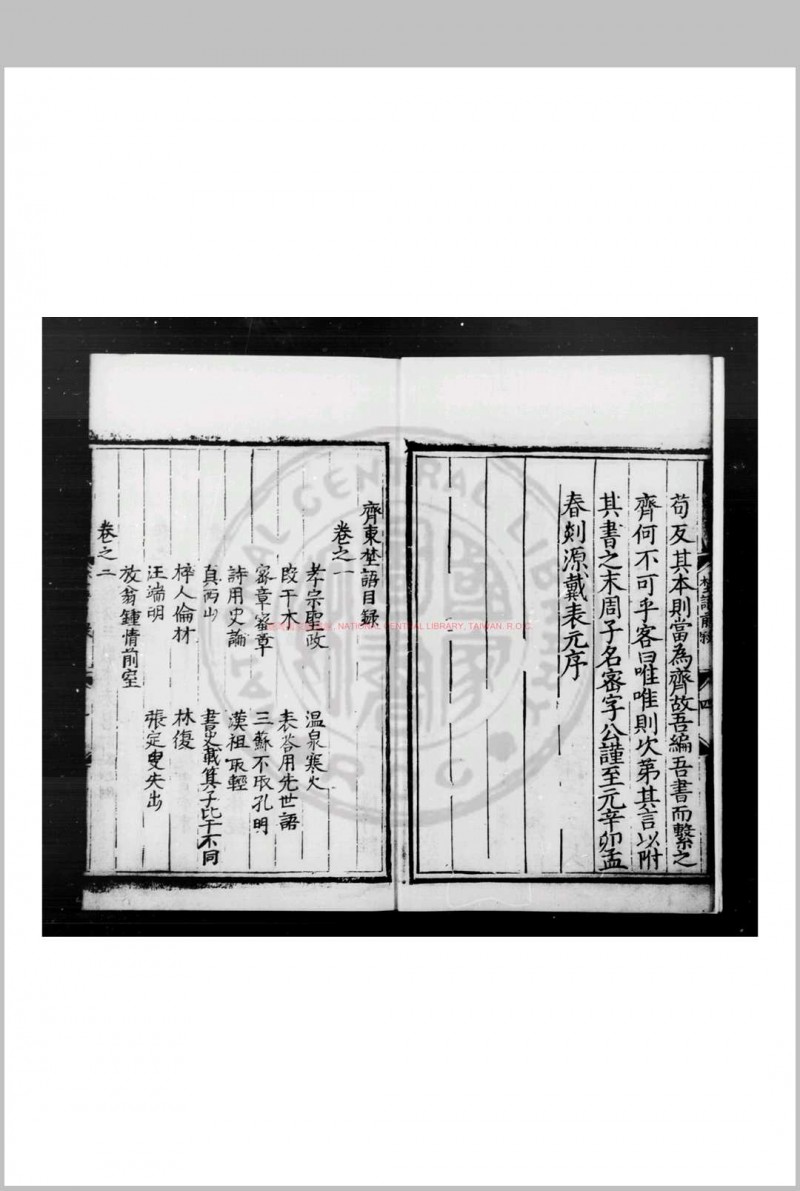 苟反其本則當為齊故吾編吾書而繫之
齊何不可乎客曰唯唯則次第其言以附
其書之末周子名密字公謹至元辛卯孟
春剡源戴表元序
齊東埜語目録
卷之一
孝宗聖政 温泉寒火
段干木 表荅用先世語
密章密章 三蘇不取孔明
詩用史論 漢祖取輕
真西山 書史載箕子比干不同
梓人倫材 林復
汪端明 張定叟失出
放翁鍾情前室
卷之二
NATIONAL CENTRAL LIBRARY, TAIWAN, R.O.C.